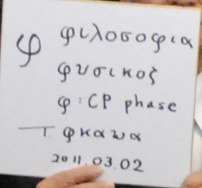 φ φιλοσοφια
φυσικος
φ : CP phase
T. φκαωα
2011.03.02